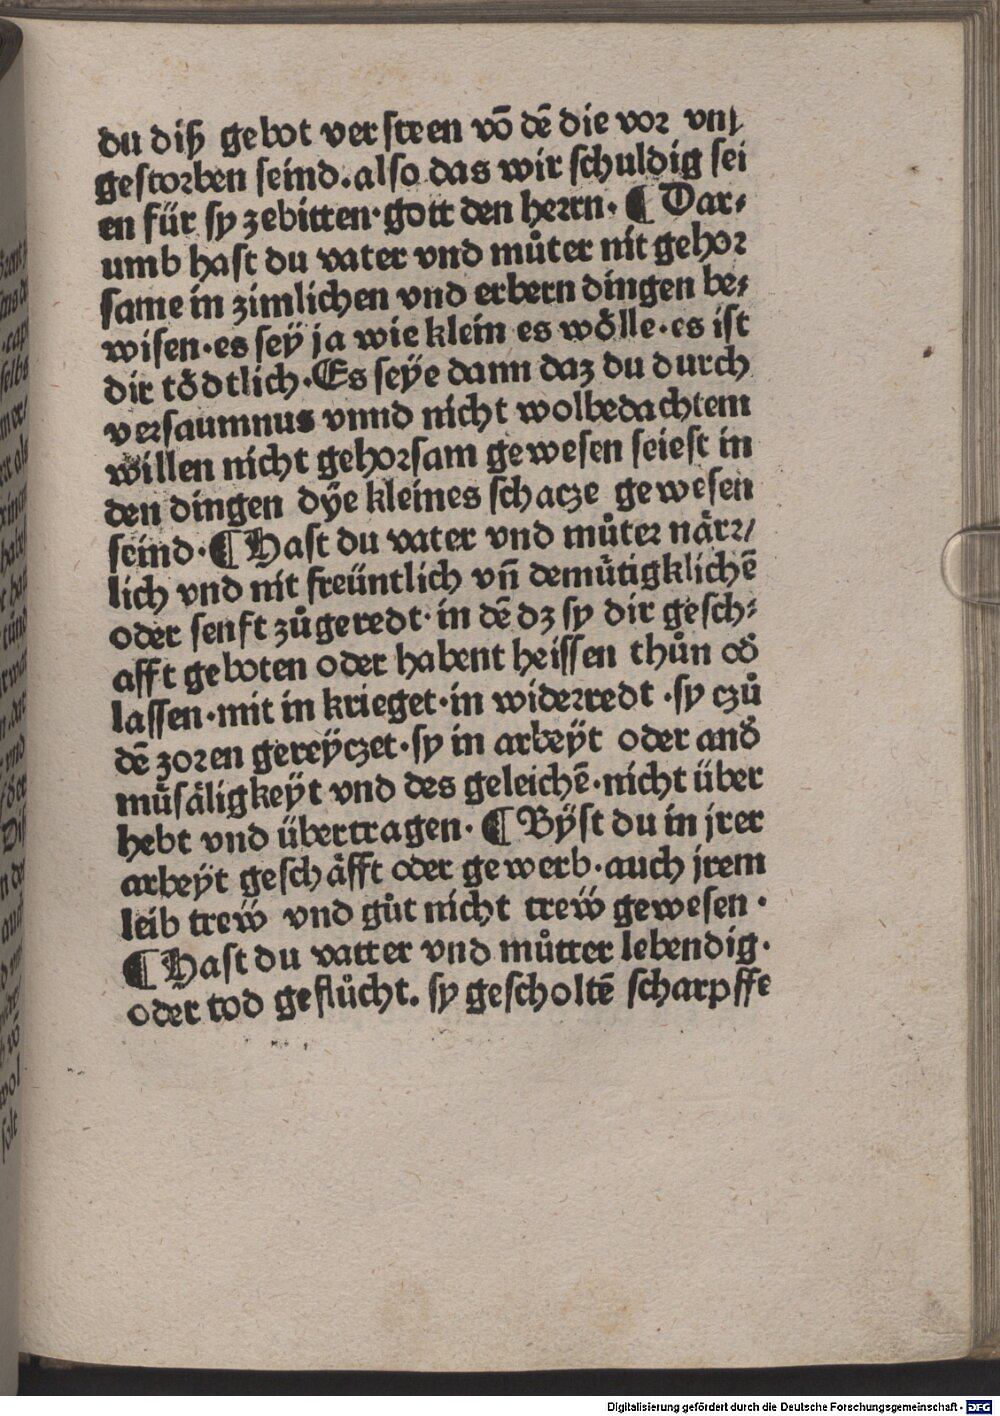 du diß gebot versteen võ dē die vor vns
gestorben seind. also das wir schuldig sei
en für sy zebitten · gott den herrn · ¶ Dar⸗
umb hast du vater vnd můter nit gehor
same in zimlichen vnd erbern dingen be⸗
wisen · es seÿ ja wie klein es wo̊lle · es ist
dir to̊dtlich · Es seÿe dann daz du durch
versaumnus vnnd nicht wolbedachtem
willen nicht gehorsam gewesen seiest in
den dingen dÿe kleines schacze gewesen
seind · ¶ Hast du vater vnd můter närr/
lich vnd nit freüntlich vñ demütigklichē
oder senft zůgeredt · in dē dz sy dir gesch⸗
afft geboten oder habent heissen thůn od̕
lassen · mit in krieget · in widerredt · sy czů
dē zoren gereÿczet · sy in arbeÿt oder and̕
müsäligkeÿt vnd des geleichē · nicht über
hebt vnd übertragen · ¶ Bÿst du in jrer
arbeÿt geschäfft oder gewerb · auch jrem
leib trew̎ vnd gůt nicht trew̎ gewesen ·
¶ Hast du vatter vnd můtter lebendig ·
oder tod geflůcht. sy gescholtē scharpffe
Digitalisierung gefördert durch die Deutsche Forschungsgemeinschaft - DFG